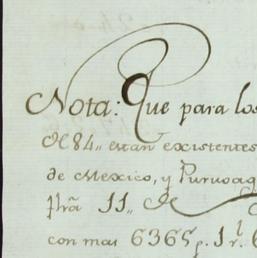 Nota: Que para los
de 84,, estan existentes
de Mexico, y Puruoag
phrã 11,, de
con mas 6365 p. 1 r.l 6